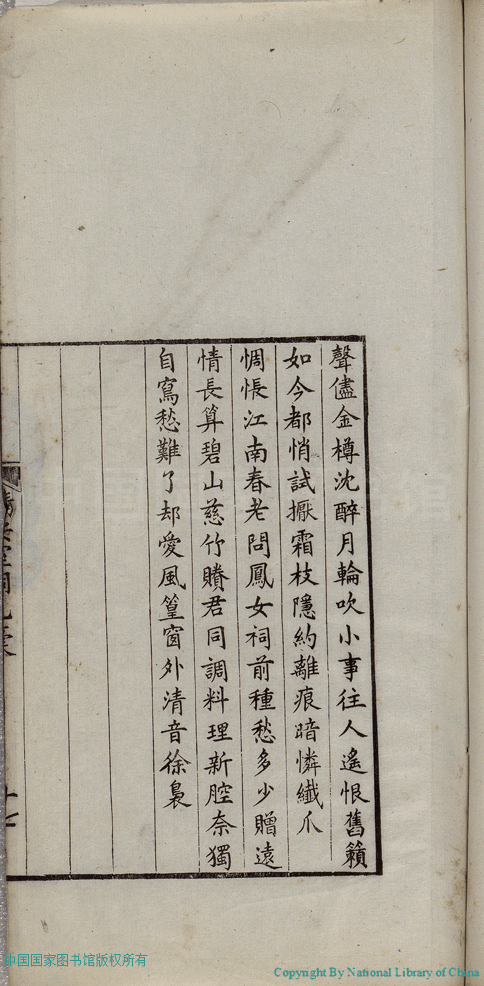 聲儘金樽沈醉月輪吹小事往人遙恨舊籟
如今都悄試撅霜枝隱約離痕暗憐纖爪
惆悵江南春老問鳳女祠前種愁多少贈遠
情長算碧山慈竹賸君同調料理新腔奈獨
自寫愁難了却愛風篁窗外清音徐裊
中国国家图书馆版权所有
Copyright By National Library of China